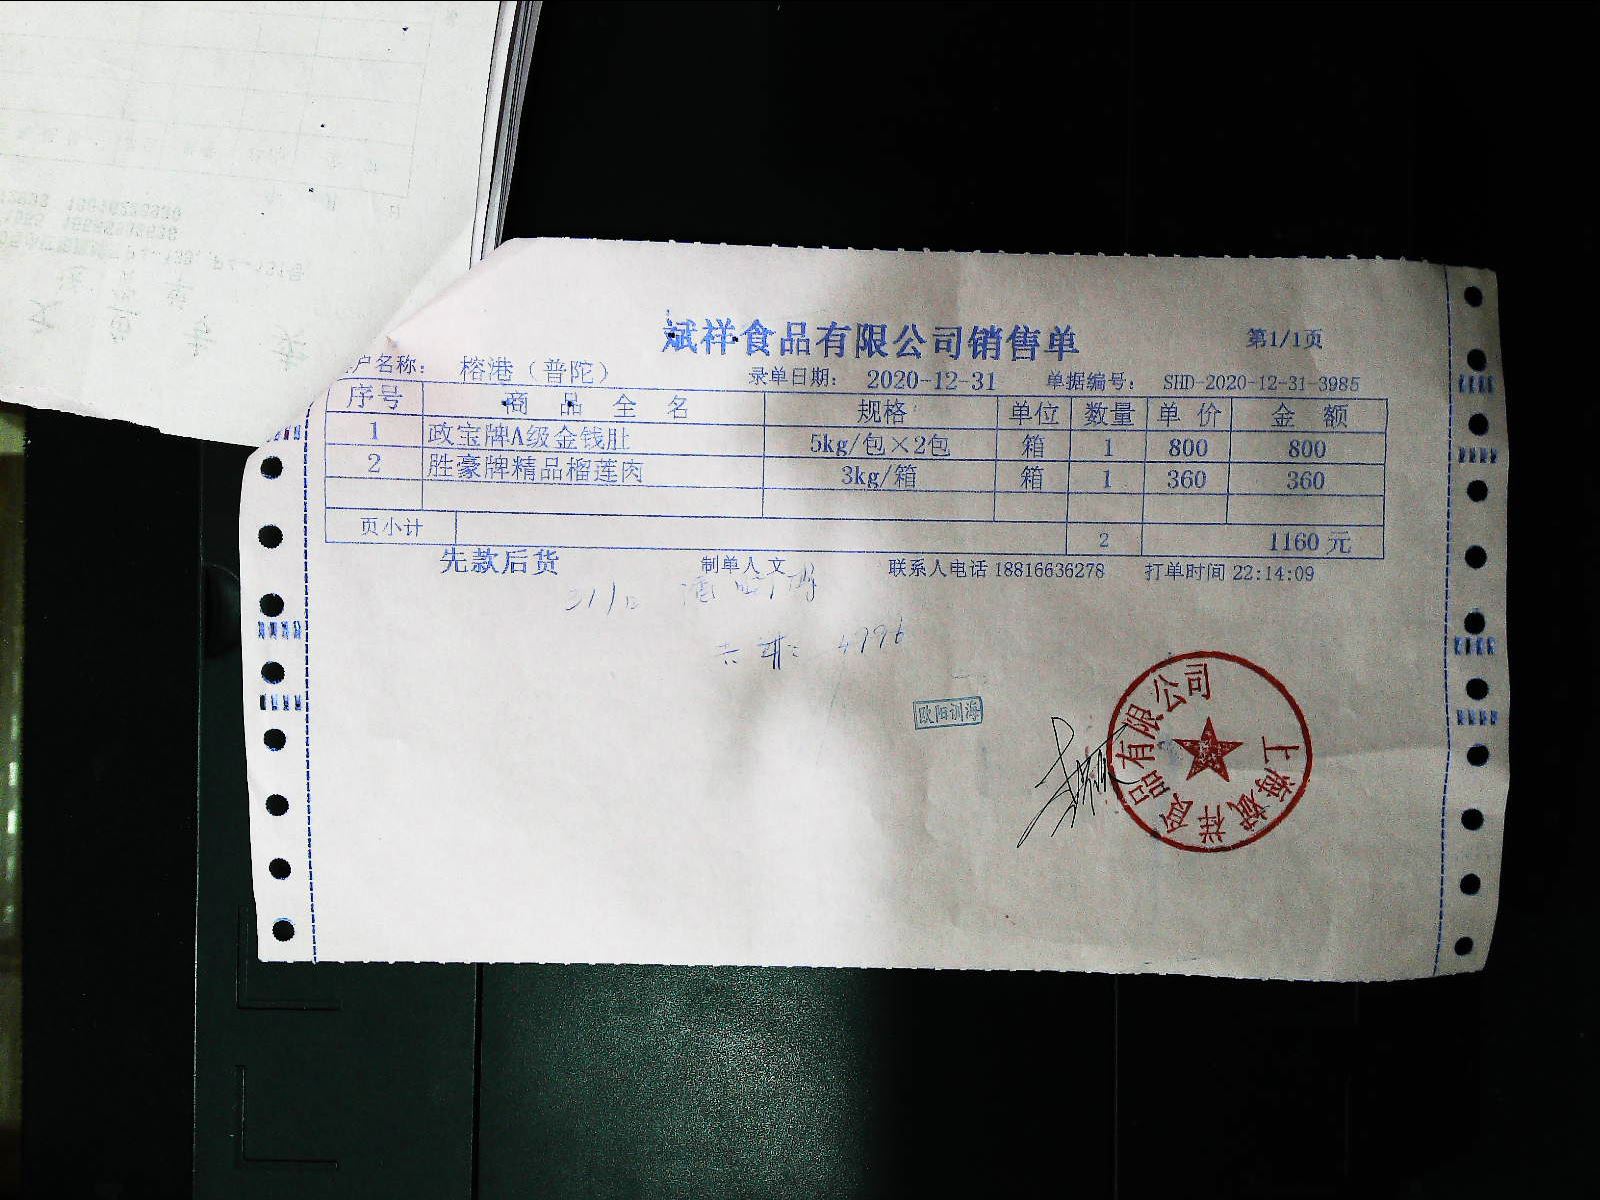 斌祥食品有限公司销售单 第1/1页
户名称： 榕港（普陀） 录单日期： 2020-12-31 单据编号： SHD-2020-12-31-3985
序号 商品全名 规格 单位 数量 单价 金额
1 政宝牌A级金钱肚 5kg/包×2包 箱 1 800 800
2 胜豪牌精品榴莲肉 3kg/箱 箱 1 360 360
页小计 2 1160 元
先款后货 制单人 文 联系人电话 18816636278 打单时间 22:14:09
欧阳训海
上海斌祥食品有限公司